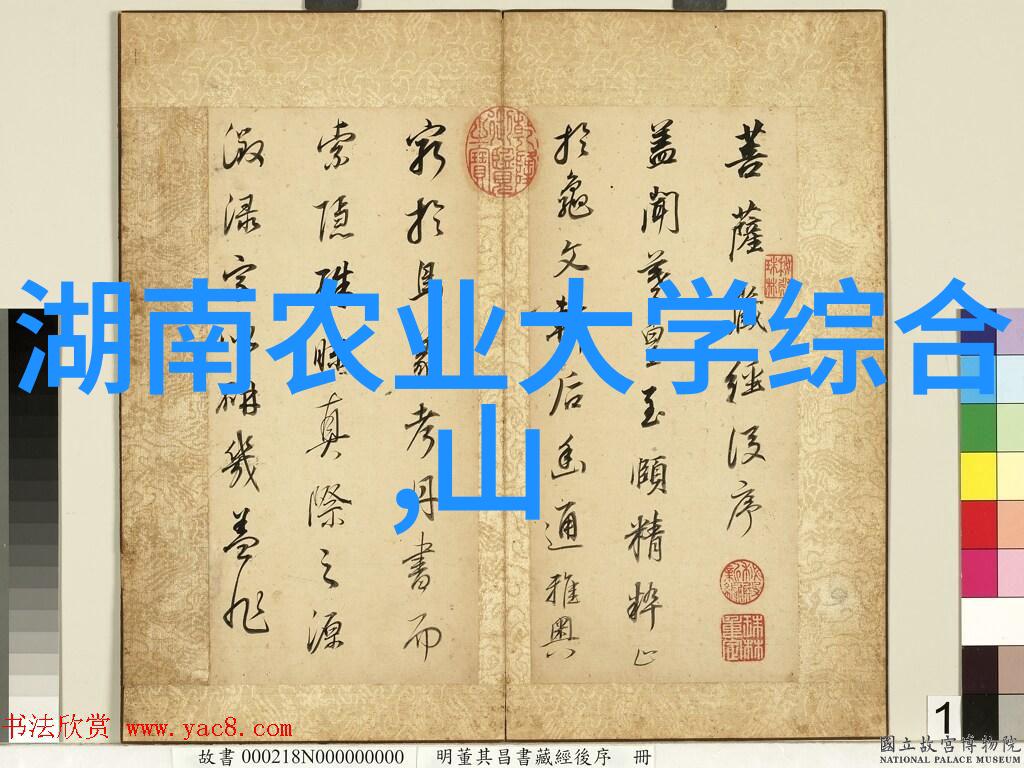 湖南农业大学综合
,山
菩薩藏經後序
蓋聞羲皇至賾精粹止
於龜文軒后幽通雅奧
窮於鳥篆考丹書而
索隱雖真際之源
字以研幾蓋非
书法欣赏 www.yac8.com
故書 000218N000000000 明董其昌書藏經後序 冊
1
國立故宮博物院
NATIONAL PALACE MUSEUM